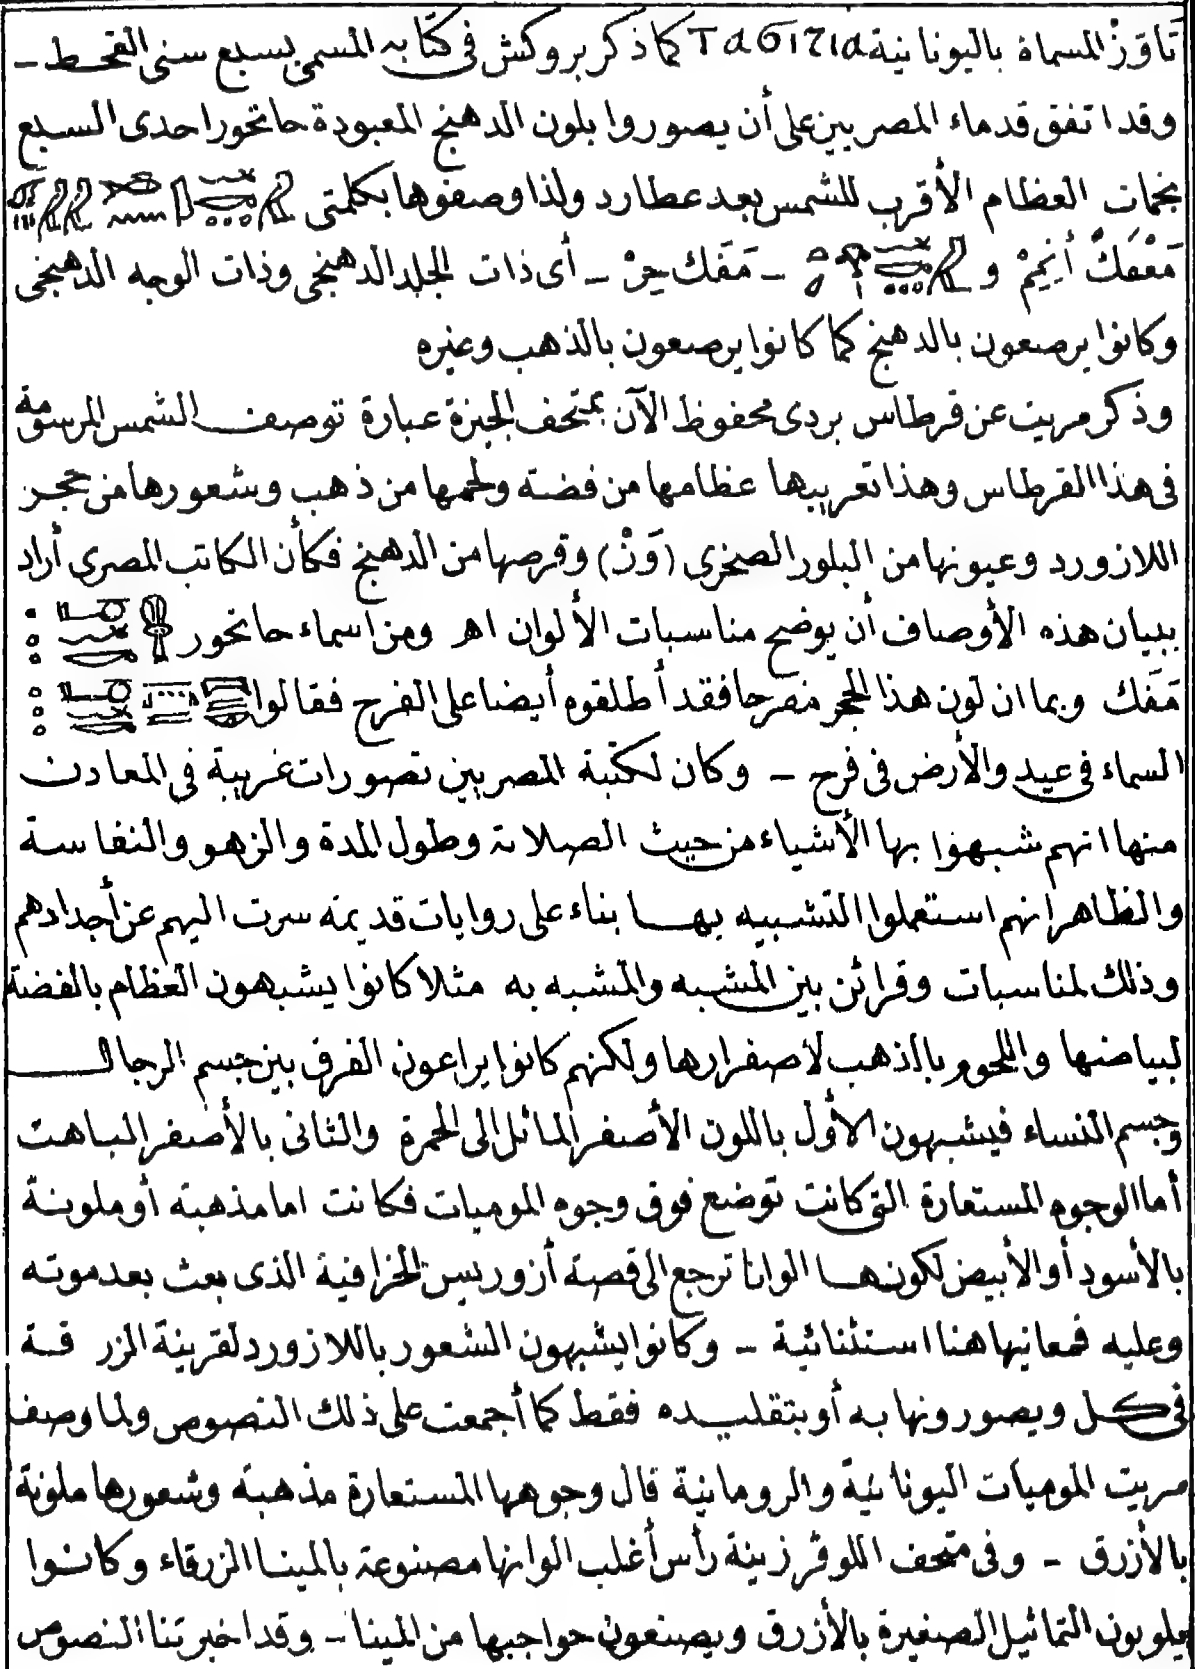 تَاوَزْ المسماة باليونانية كما ذكر بروكش فى كتابه المسمى بسبع سنى القحط ـ
وقد اتفق قدماء المصريين على أن يصوروا بلون الدهنج المعبودة حاتحور احدى السبع
نجمات العظام الأقرب للشمس بعد عطارد ولذا وصفوها بكلمتى
مَفْفَكْ أَنِمِمْ و ـ مَفَك حِرْ ـ أى ذات الجلد الدهنجى وذات الوجه الدهنجى
وكانوا يرصعون بالدهنج كما كانوا يرصعون بالذهب وغيره
وذكر مريت عن قرطاس بردى محفوظ الآن بمتحف الجيزة عبارة توصف الشمس المرسومة
فى هذا القرطاس وهذا تعريبها عظامها من فضة ولحمها من ذهب وشعورها من حجر
اللازورد وعيونها من البلور الصخرى (وَزْ) وقرصها من الدهنج فكأن الكاتب المصرى أراد
ببيان هذه الأوصاف أن يوضح مناسبات الألوان اهـ ومن اسماء حاتحور
مَفَك وبما ان لون هذا الحجر مفرحا فقد أطلقوه أيضا على الفرح فقالوا
السماء فى عيد والأرض فى فرح ـ وكان لكتبة المصريين تصورات غريبة فى المعادن
منها انهم شبهوا بها الأشياء من حيث الصلابة وطول المدة والزهو والنفاسة
والظاهر انهم استعملوا التشبيه بها بناء على روايات قديمة سرت اليهم عن أجدادهم
وذلك لمناسبات وقرائن بين المشبه والمشبه به مثلا كانوا يشبهون العظام بالفضة
لبياضها واللحوم بالذهب لاصفرارها ولكنهم كانوا يراعون الفرق بين جسم الرجال
وجسم النساء فيشبهون الأوّل باللون الأصفر المائل الى الحمرة والثانى بالأصفر الباهت
أما الوجوه المستعارة التى كانت توضع فوق وجوه الموميات فكانت اما مذهبة أو ملونة
بالأسود أو الأبيض لكونها الوانا ترجع الى قصة أزوريس الخرافية الذى بعث بعد موته
وعليه فمعانيها هنا استثنائية ـ وكانوا يشبهون الشعور باللازورد لقرينة الزرقة
فى كل ويصورونها به أو بتقليده فقط كما أجمعت على ذلك النصوص ولما وصف
مريت الموميات اليونانية والرومانية قال وجوهها المستعارة مذهبة وشعورها ملونة
بالأزرق ـ وفى متحف اللوڤر زينة رأس أغلب الوانها مصنوعة بالمينا الزرقاء وكانوا
يلونون التماثيل الصغيرة بالأزرق ويصنعون حواجبها من المينا ـ وقد اخبرتنا النصوص